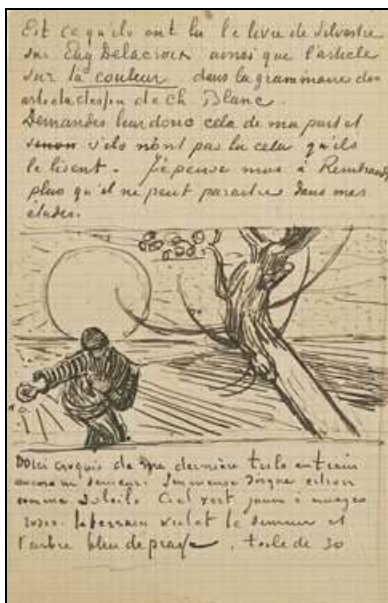 Est ce qu'ils ont lu le livre de Silvestre
sur Eug Delacroix ainsi que l'article
sur la couleur dans la grammaire des
arts du dessin de Ch Blanc.
Demandes leur donc cela de ma part et
sinon s'ils n'ont pas lu cela qu'ils
le lisent. J'epense moi à Rembrandt
plus qu'il ne peut paraitre dans mes
études.
Voici croquis de ma dernière toile en train
encore un semeur. Immense disque citron
comme soleil. Ciel vert jaune à nuages
roses. le terrain violet le semeur et
l'arbre bleu de prusse. toile de 30